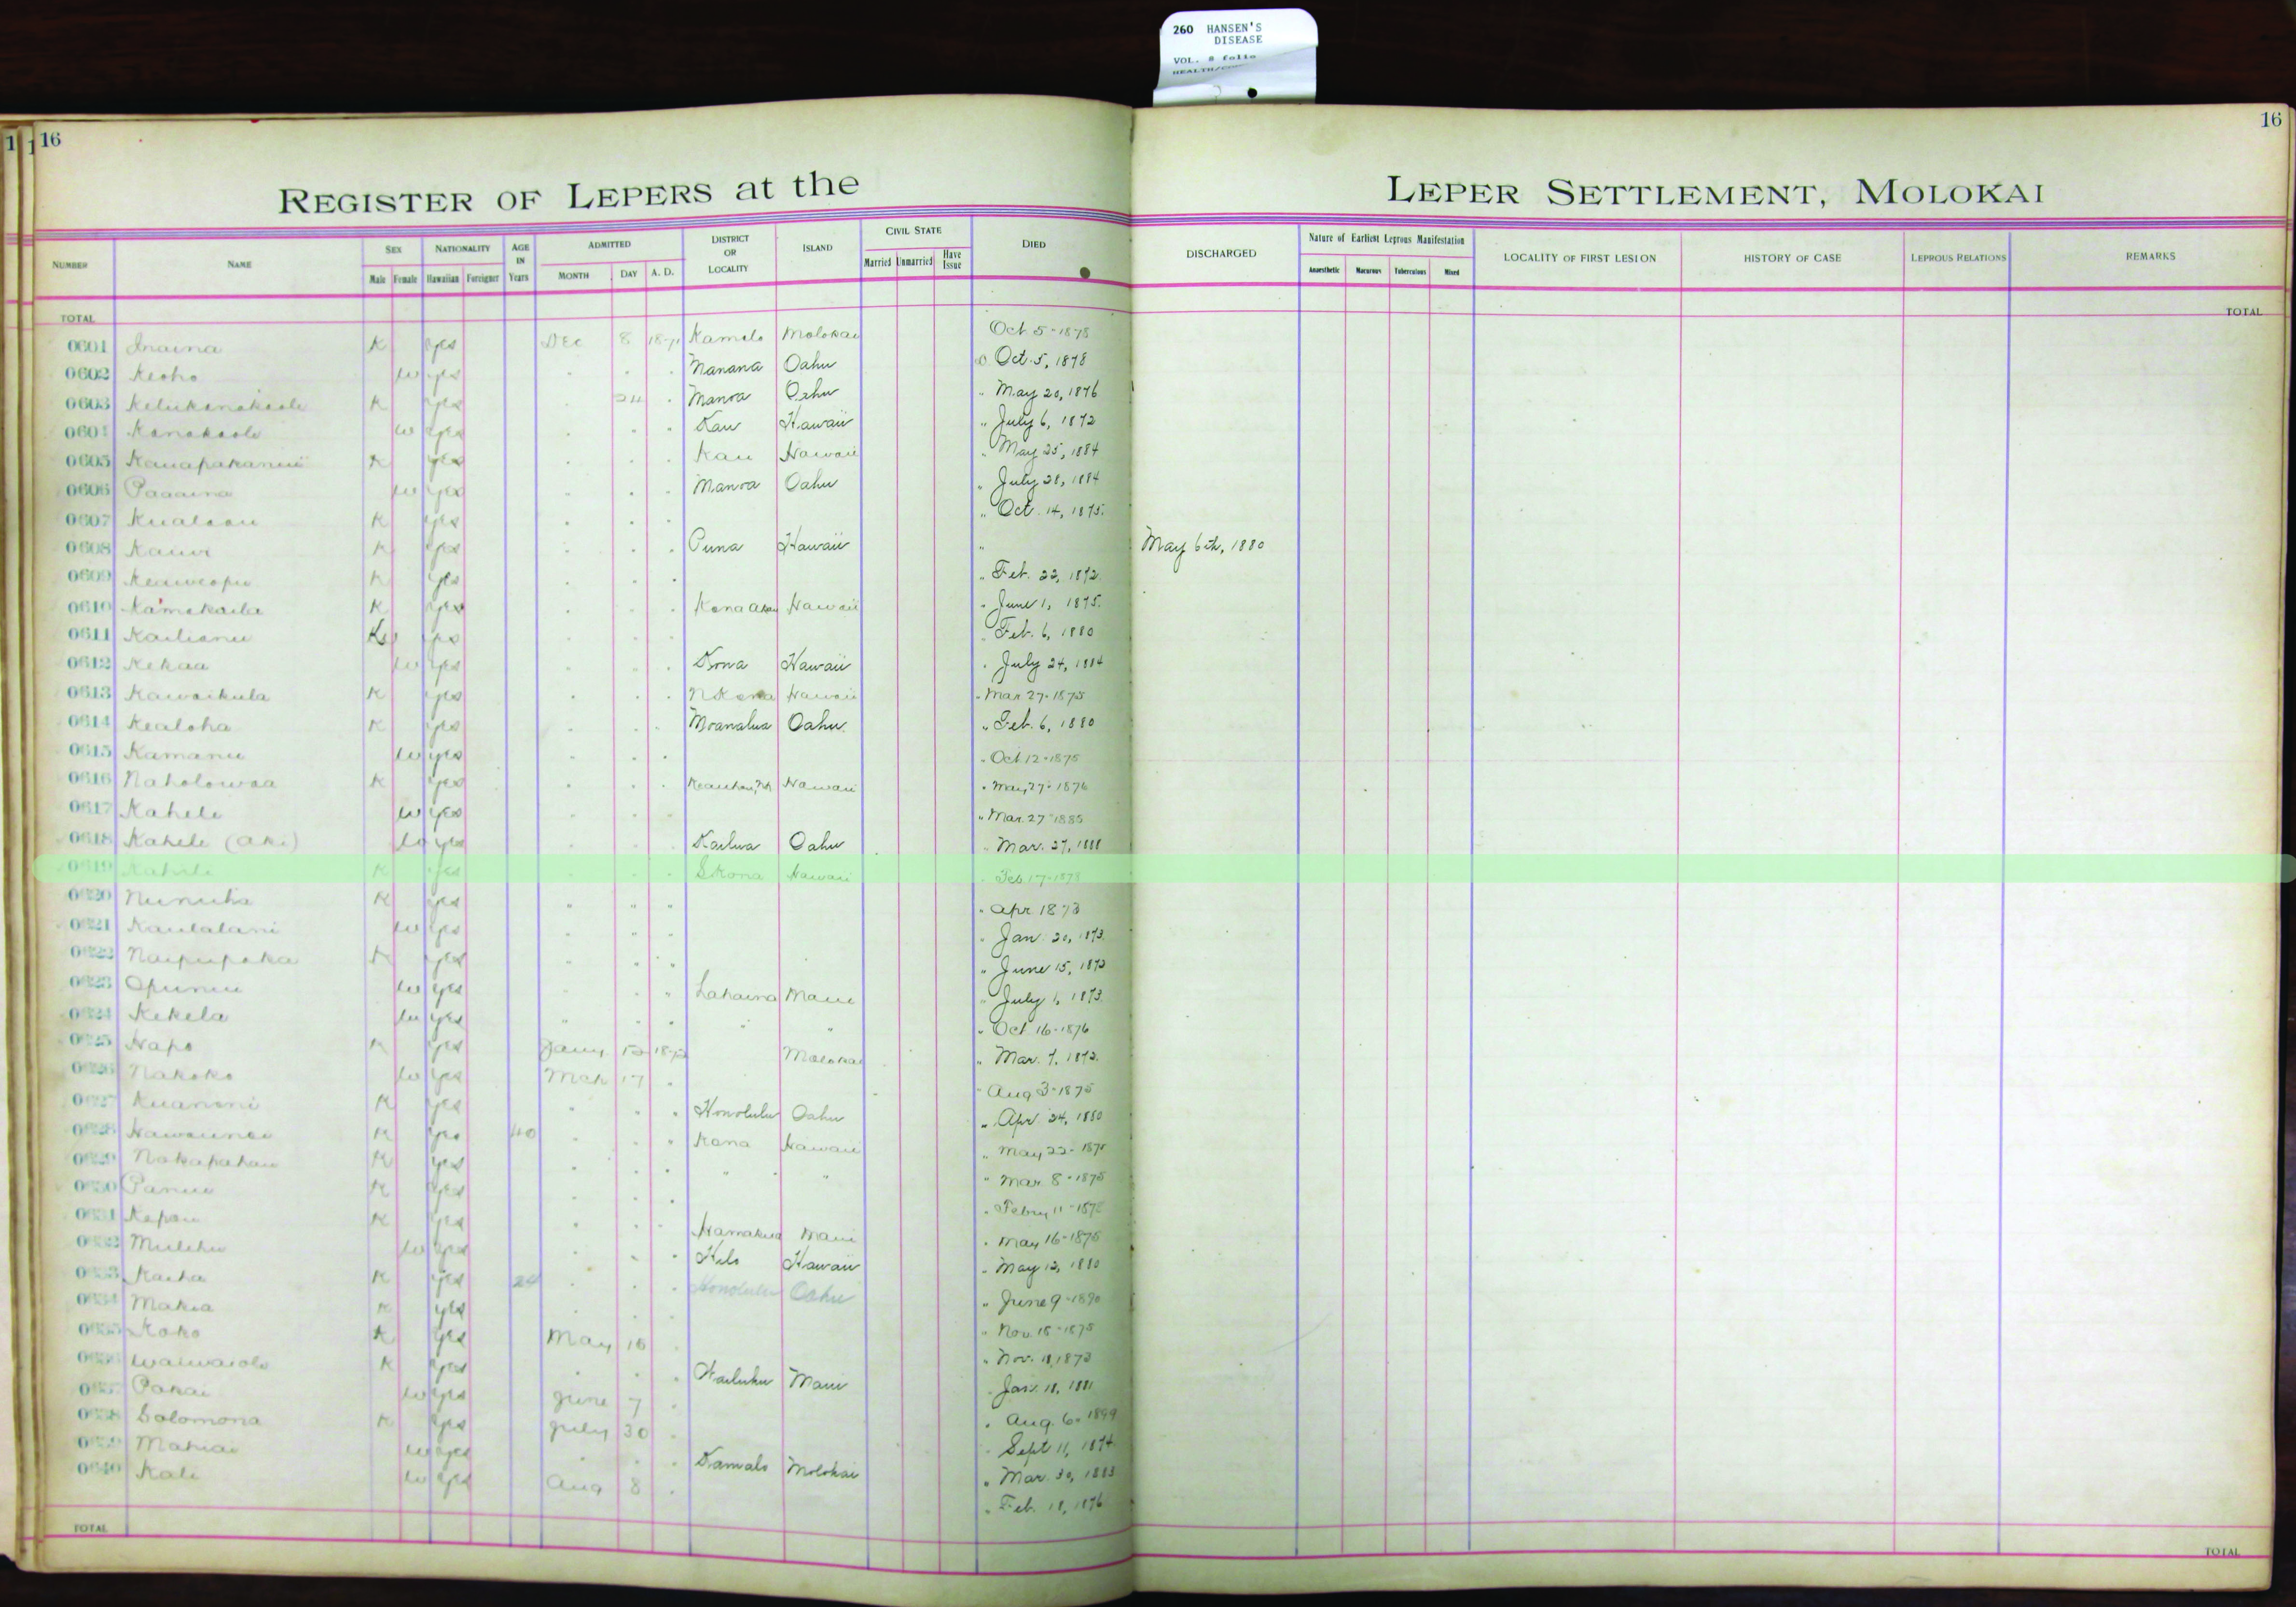 260 HANSEN'S
DISEASE
VOL. 8 folio
16
16
REGISTER OF LEPERS at the
LEPER SETTLEMENT, MOLOKAI
NUMBER NAME SEX Male Female NATIONALITY Hawaiian Foreigner AGE IN Years ADMITTED MONTH DAY A. D. DISTRICT OR LOCALITY ISLAND CIVIL STATE Married Unmarried Have Issue DIED DISCHARGED Nature of Earliest Leprous Manifestation Anaesthetic Macurous Tuberculous Mixed LOCALITY OF FIRST LESION HISTORY OF CASE LEPROUS RELATIONS REMARKS
TOTAL TOTAL
0601 Inaina K yes Dec 8 Kamalo Molokai Oct 5-1878
0602 Keoho w yes Manana Oahu Oct. 5, 1878
0603 K yes 24 Manoa Oahu " May 20, 1876
0604 Kanakaole w yes Kau Hawaii " July 6, 1872
0605 K yes Kau Hawaii " May 25, 1884
0606 Paaaina w yes Manoa Oahu " July 28, 1884
0607 K yes " Oct. 14, 1875
0608 Kauwi K yes Puna Hawaii " May 6th, 1880
0609 Keaweopu K yes " Feb. 22, 1872
0610 K yes Kona Akau Hawaii " June 1, 1875
0611 Kailianu yes Feb. 6, 1880
0612 Kekaa w yes Kona Hawaii " July 24, 1884
0613 Kawaikula K yes N Kona Hawaii " Mar 27-1875
0614 Kealoha K yes Moanalua Oahu " Feb. 6, 1880
0615 Kamanu w yes " Oct 12-1875
0616 Naholowaa K yes Hawaii " May 27-1876
0617 Kahele w yes " Mar. 27-1885
0618 Kahele (aki) w yes Kailua Oahu " Mar. 27, 1888
0619 K yes S Kona Hawaii " Feb 17-1873
0620 K yes " " " " Apr. 1873
0621 Kaulalani w yes " " Jan. 20, 1873
0622 Naipupaka K yes " " June 15, 1873
0623 Opunui w yes " Lahaina Maui " July 1, 1873
0624 Kekela w yes " " " " " " Oct 16-1876
0625 Hapo K yes Jany 1872 Molokai " Mar. 7, 1872
0626 Nakoko w yes Mch 17 " Aug 3-1875
0627 Kuanoni K yes Honolulu Oahu " Apr. 24, 1880
0628 K yes 40 Kona Hawaii " May 22-
0629 Nakapahau K yes " " " Mar. 8-1875
0630 Panui K yes " Febry 11-
0631 Kapau K yes Hamakua Maui " May 16-1875
0632 Mulehu w yes Hilo Hawaii " May 12, 1880
0633 Kaiha K yes 24 Honolulu Oahu " June 9-1890
0634 Makia K yes " Nov. 18-1875
0635 Koko K yes May 16 " Nov. 11, 1873
0636 Waiwaiole K yes Wailuku Maui Jan. 18, 1881
0637 Pakai w yes June 7 " Aug. 6, 1899
0638 Solomona K yes July 30 Sept 11, 1874
0639 Mahiai w yes Kamalo Molokai " Mar. 30, 1883
0640 Kali w yes Aug 8 " Feb. 18, 1876
TOTAL TOTAL